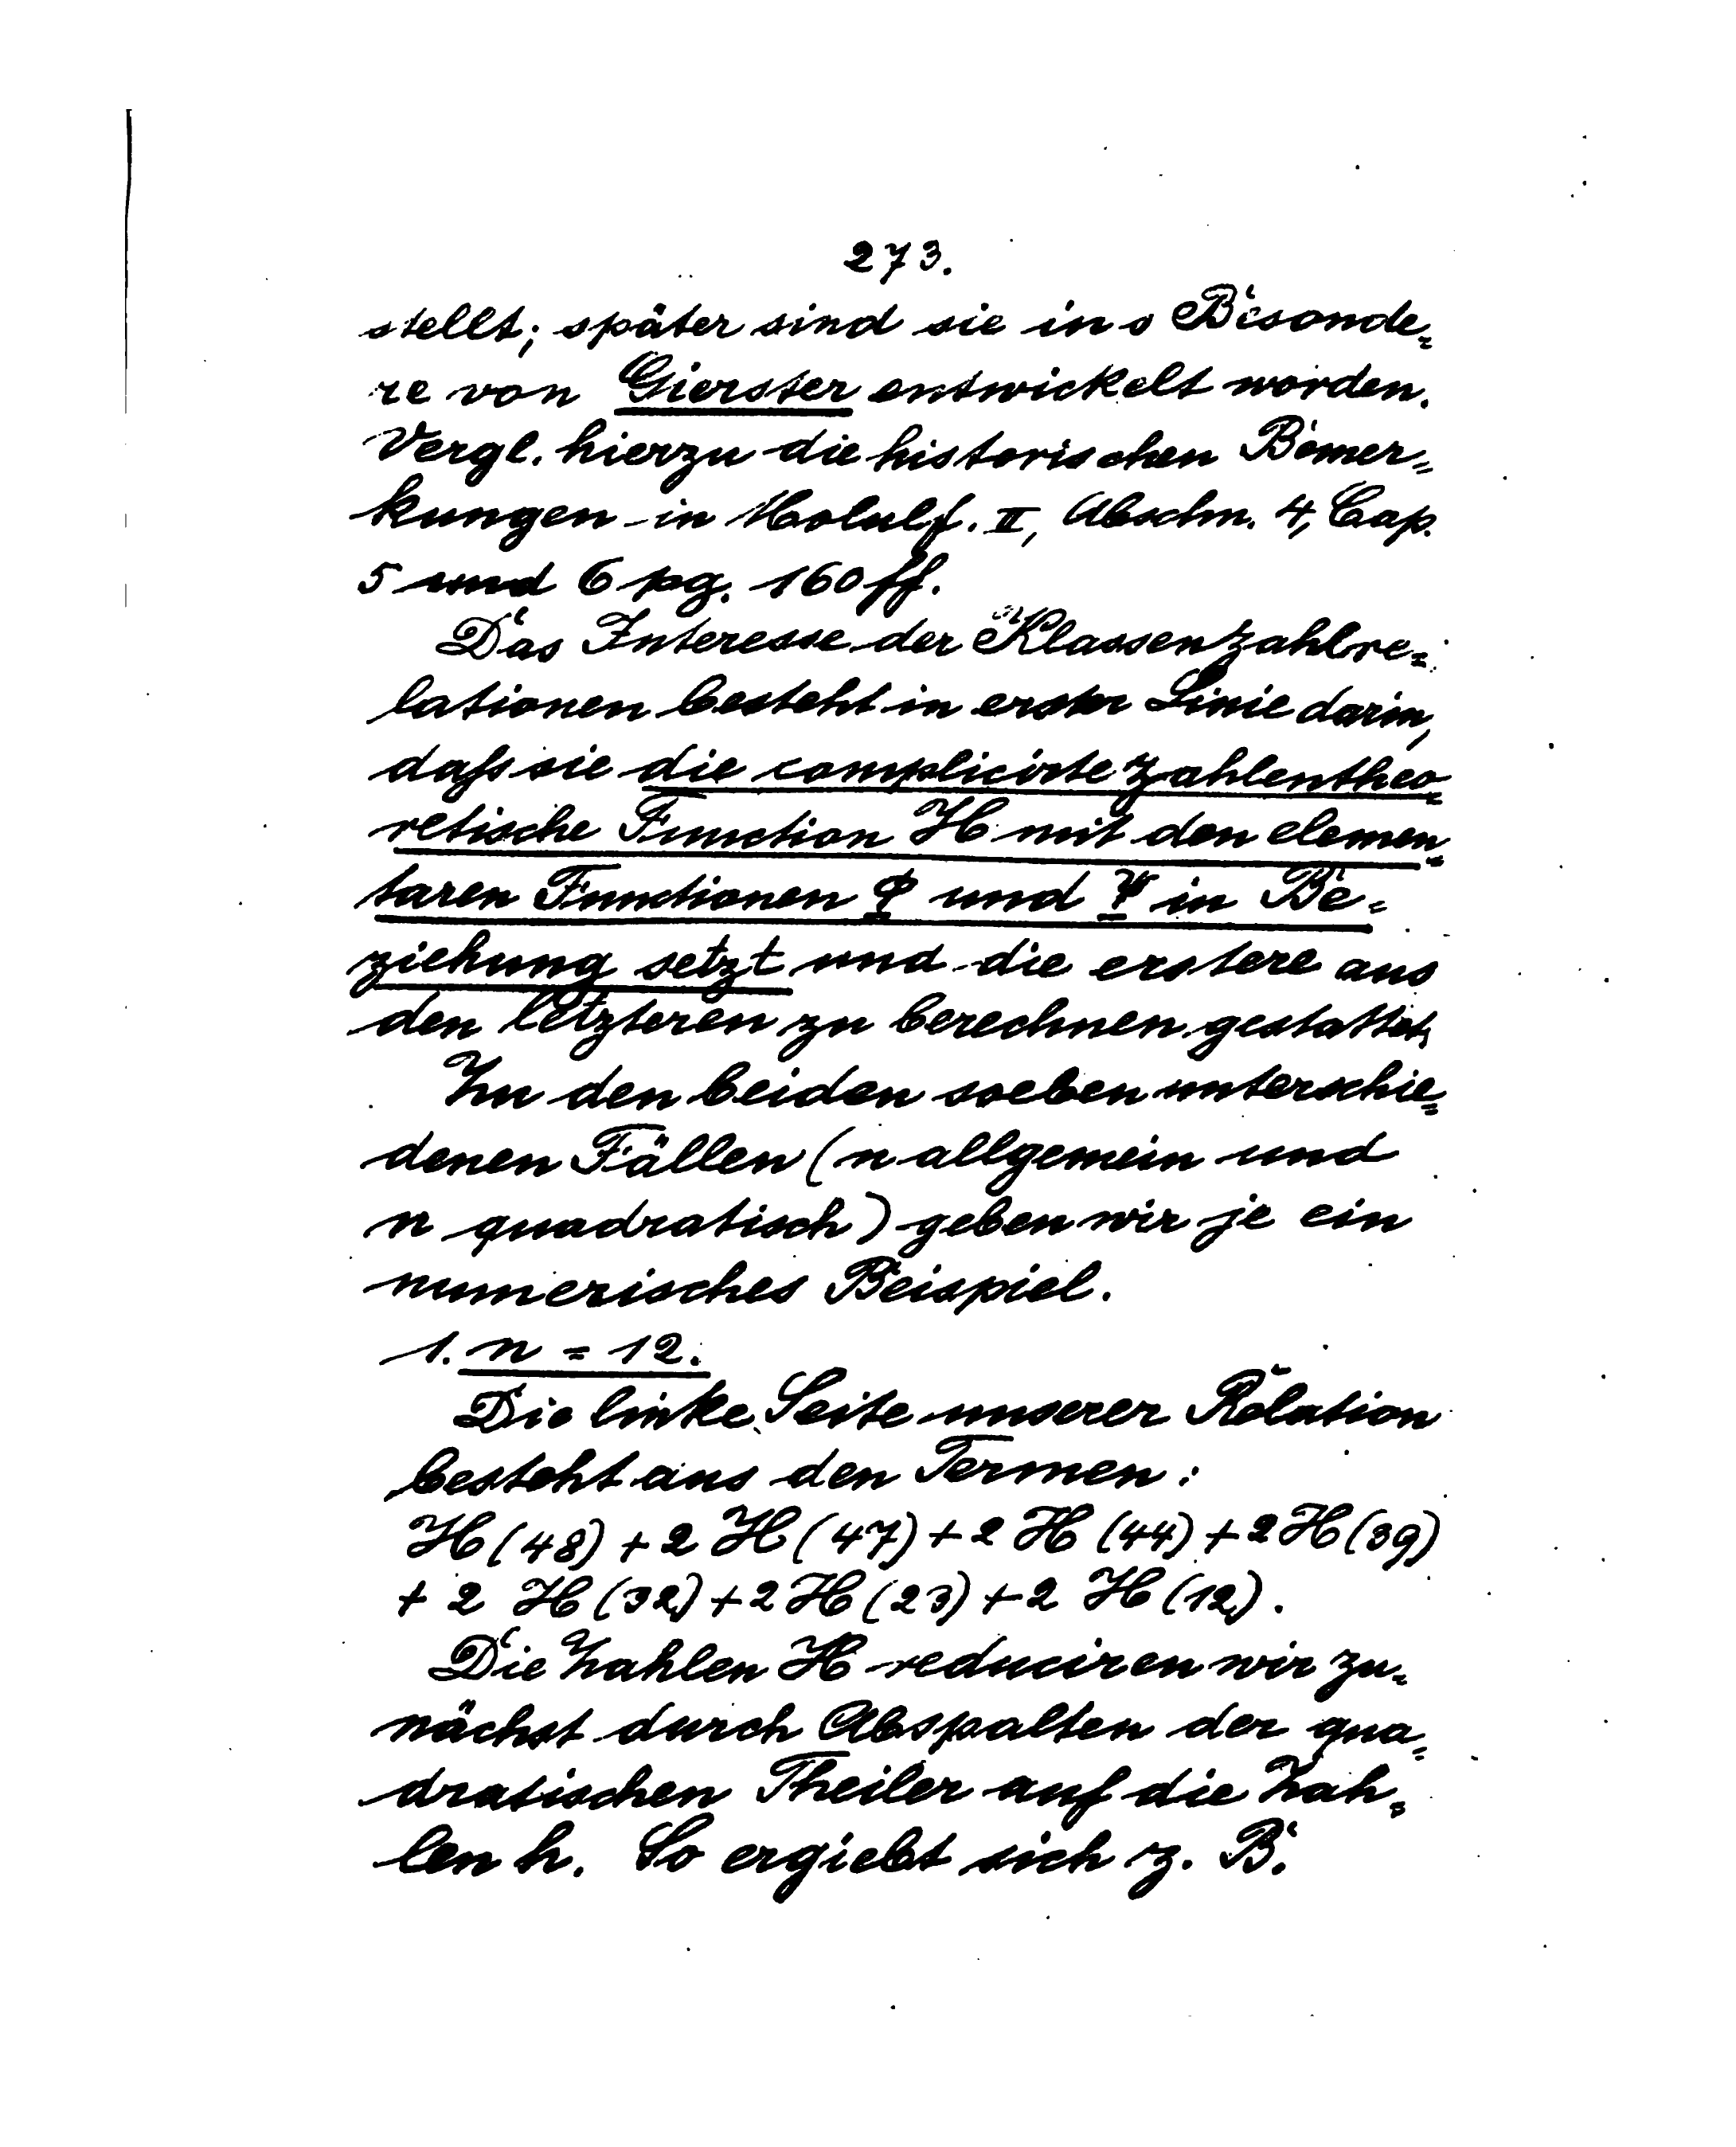 273.
stellt; später sind sie ins Besonde-
re von Gierster entwickelt worden.
Vergl. hierzu die historischen Bemer-
kungen in Molulf. II, Abschn. 4, Cap.
5 und 6 pg. 160 ff.
Das Interesse der Klassenzahlre-
lationen besteht in erster Linie darin,
daß sie die complicirte zahlentheo-
retische Function H mit den elemen-
taren Functionen Φ und Ψ in Be-
ziehung setzt und die erstere aus
den letzteren zu berechnen gestattet.
Zu den beiden soeben unterschie-
denen Fällen (n allgemein und
n quadratisch) geben wir je ein
numerisches Beispiel.
1. n = 12.
Die linke Seite unserer Relation
besteht aus den Termen:
H(48) + 2 H(47) + 2 H(44) + 2 H(39)
+ 2 H(32) + 2 H(23) + 2 H(12).
Die Zahlen H reduciren wir zu-
nächst durch Abspalten der qua-
dratischen Theiler auf die Zah-
len h. So ergiebt sich z. B.